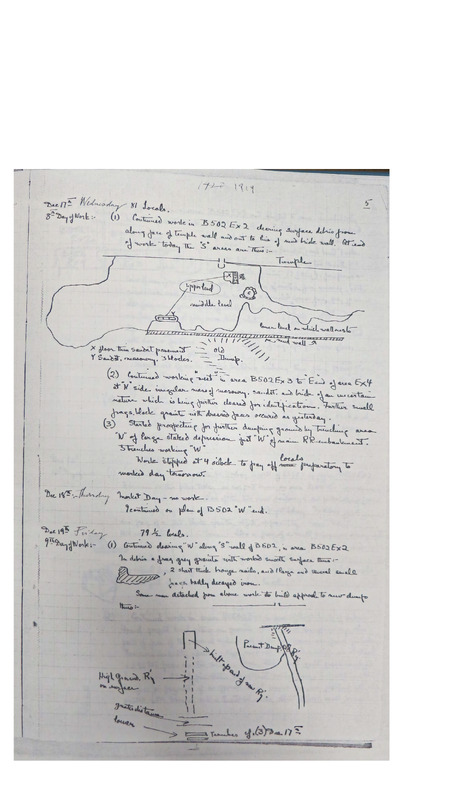 1919
5
Dec 17th Wednesday 81 Locals.
8th Day of Work:- (1) Continued work in B502 Ex 2 clearing surface debris from
along face of temple wall and out to line of mud brick wall. At end
of work today the "S" area are thus:-
Temple
X
Upper level
middle level
Y
lower level on which wall rests
mud wall
X floor thin sandst pavement
Y Sandst. masonry, 3 blocks.
Old
Dump.
(2) Continued working "west" in area B502 Ex 3 to "E" end of area Ex 4
at "N" side irregular mass of masonry, sandst. and brick of an uncertain
nature which is being further cleared for identification. Further small
frags black granite with dressed faces occured as yesterday.
(3) Started prospecting for further dumping ground by trenching area
"N" of large staked depression just "W" of main RR embankment.
3 trenches working "W"
Work stopped at 4 o'clock to pay off locals preparatory to
market day tomorrow.
Dec 18th:- Thursday Market Day - no work.
continued on plan of B502 "W" end.
Dec 19th Friday 79 1/2 locals.
9th Day of Work:- (1) Continued clearing "W" along "S" wall of B502, in area B502 Ex 2
In debris a frag grey granite with worked smooth surface thus:-
2 short thick bronze nails, and 1 large and several small
pieces badly decayed iron.
Some men detached from above work to build approach to new dump
thus:-
High ground R'y
on surface
built up and of new R'y
Present Dump
R'y
lower
Trenches of (3) Dec 17th